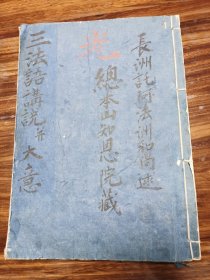 長洲託阿法洲和尚述
總本山知恩院藏
三法語講說并大意